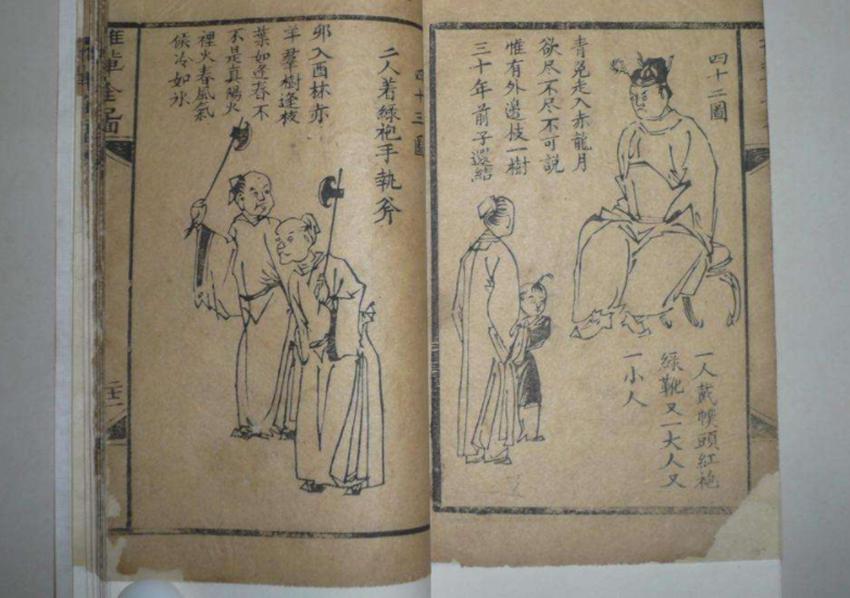 四十二圖
青兔走入赤龍月
欲尽不尽不可說
惟有外邊枝一樹
三十年前子還結
一人戴幞頭紅袍
綠靴又一大人又
一小人
四十三圖
二人着綠袍手執斧
卯入酉林亦
羊羣樹逢枝
葉如逢春不
不是真陽火
裡火春風氣
候冷如氷